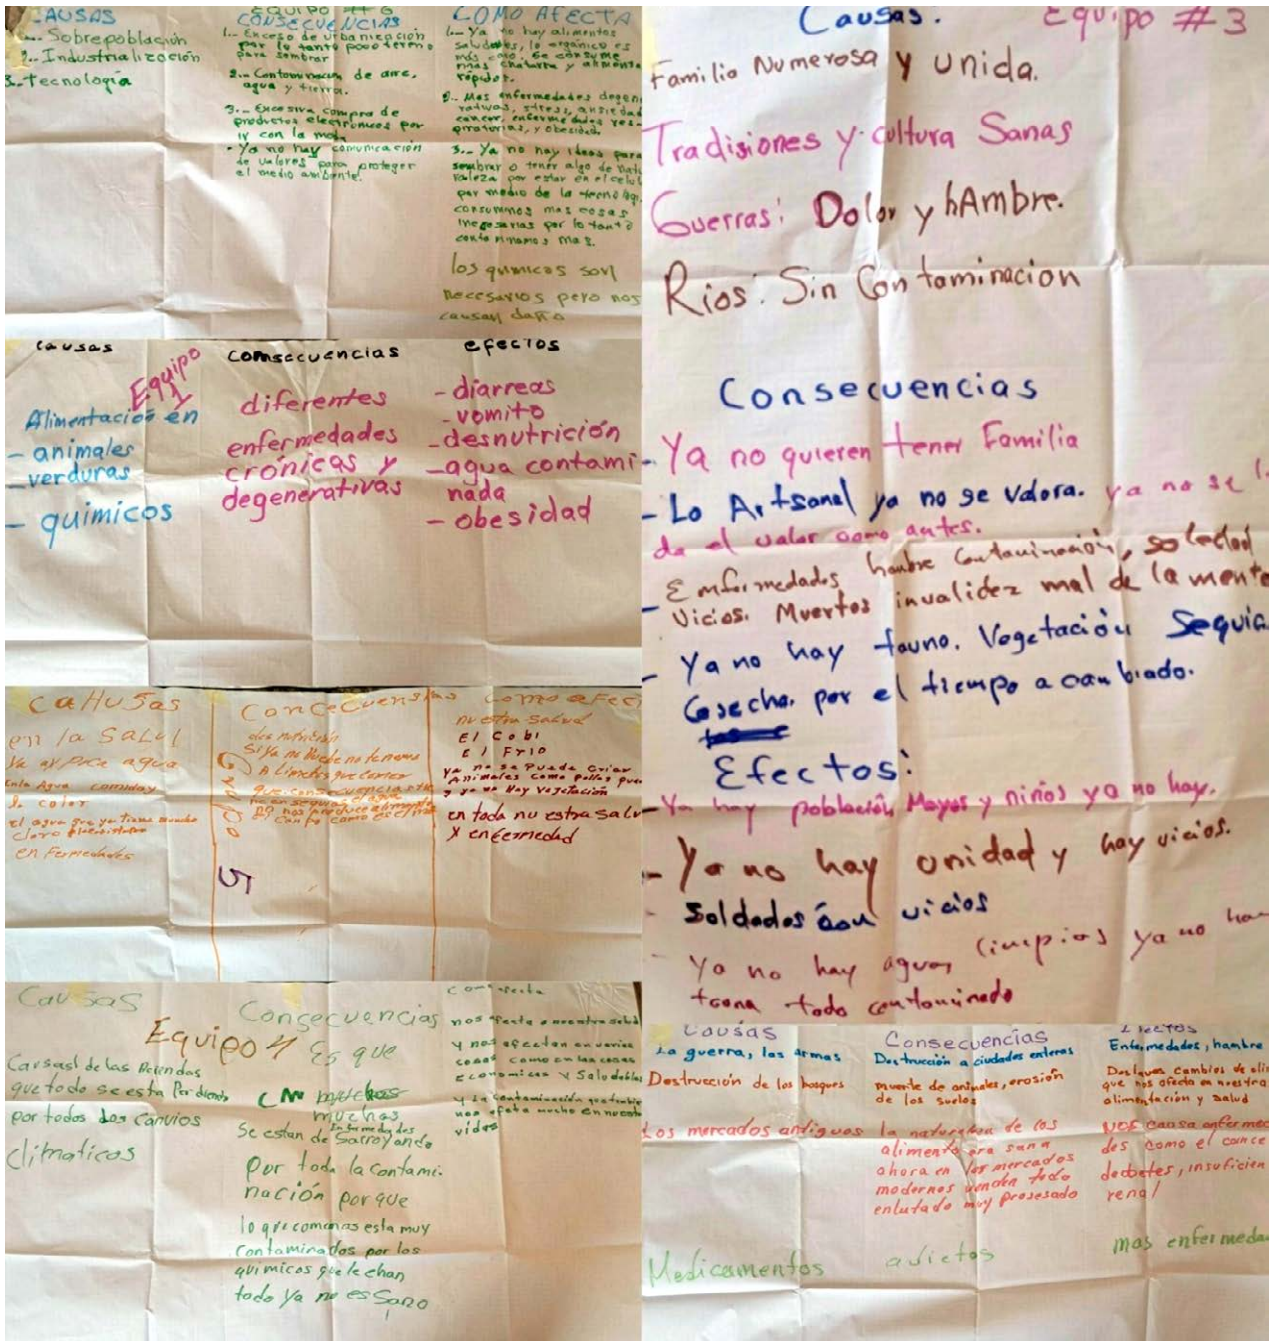 CAUSAS
1.- Sobrepoblación
2.- Industrialización
3.- Tecnología
EQUIPO # 6
CONSECUENCIAS
1.- Exceso de urbanización
por lo tanto poco terreno
para sembrar
2.- Contaminación de aire,
agua y tierra.
3.- Excesiva compra de
productos electrónicos por
ir con la moda
- Ya no hay comunicación
de valores para proteger
el medio ambiente.
COMO AFECTA
1.- Ya no hay alimentos
saludables, lo orgánico es
más caro. Se consume
mas chatarra y alimento
rápidos.
2.- Mas enfermedades degene
rativas, stress, ansiedad
cancer, enfermedades res-
piratorias, y obesidad.
3.- Ya no hay ideas para
sembrar o tener algo de natu
raleza por estar en el celul
por medio de la tecnologi
consumimos mas cosas
inegesarias por lo tanto
contaminamos mas.
los quimicos son
necesarios pero nos
causan daño
causas
Equipo
1
Alimentación en
- animales
- verduras
- quimicos
consecuencias
diferentes
enfermedades
crónicas y
degenerativas
efectos
- diarreas
- vomito
- desnutrición
- agua contami
nada
- obesidad
caHusas
en la salul
agua
color
en Fermedades
Concecuensias
5
como afec
nuestra salud
El Cobi
El Frio
ya no se Puede Criar
Animales como pollos
y ya no Hay vegetación
en toda nuestra salu
y enfermedad
Causas
Equipo 4
Causasl de las
que todo se esta Perdiendo
por todos los canvios
climaticos
Consecuencias
Es que
muchas
enfermedades
Se estan desarroyando
por toda la contami-
nación porque
lo que comemos esta muy
contaminados por los
quimicos que le echan
todo ya no es Sano
nos afecta a nuestra salud
y nos afectan en varias
cosas como en las cosas
economicas y saludables
y la contaminación
nos afecta mucho en nuestra
vidas
Causas.
Equipo #3
Familia Numerosa y unida.
Tradisiones y cultura Sanas
Guerras: Dolor y hAmbre.
Rios: Sin Contaminacion
Consecuencias
- Ya no quieren tener Familia
- Lo Artsanal ya no se valora. ya no se l
da el valor como antes.
- Enfermedades hambre Contaminación, soledad
Vicios. Muertos invalidez mal de la mente
- Ya no hay fauno. Vegetación Sequia
Cosecha. por el tiempo a cambiado.
Efectos:
- Ya hay población Mayor y niños ya no hay.
- Ya no hay unidad y hay vicios.
- Soldados con vicios
- Ya no hay aguas limpias ya no ha
todo contaminado
Causas
La guerra, las armas
Destrucción de los bosques
Los mercados antiguos
Medicamentos
Consecuencias
Destrucción a ciudades enteras
muerte de animales, erosión
de los suelos
la naturaleza de los
alimento era sana
ahora en los mercados
modernos venden todo
enlatado muy prosesado
adictos
Efectos
Enfermedades, hambre
cambios de
que nos afecta en nuestra
alimentación y salud
NOS causa enfermeda
des como el cance
debetes, insuficien
renal
mas enfermeda